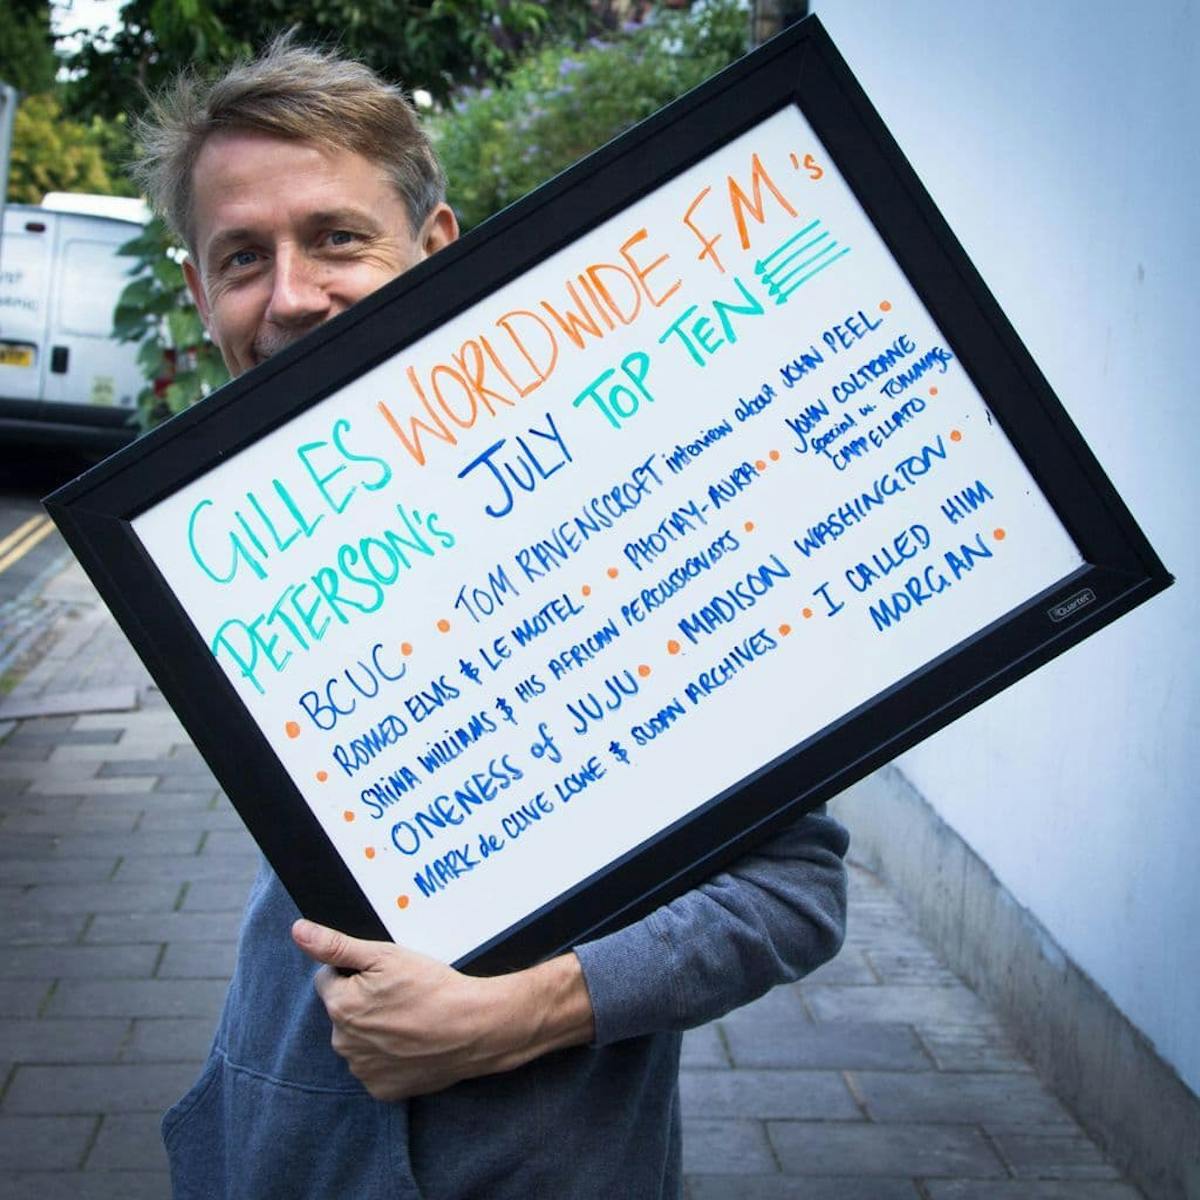 GILLES WORLDWIDE FM's
PETERSON's JULY TOP TEN
• BCUC • • TOM RAVENSCROFT interview about JOHN PEEL •
• ROMEO ELVIS & LE MOTEL • • PHOTAY-AURA • • JOHN COLTRANE
special w. TONY
CHAPPELLATO •
• SHINA WILLIAMS & HIS AFRICAN PERCUSSIONISTS •
• ONENESS of JUJU • • MADISON WASHINGTON •
• MARK de CLIVE LOWE & SUDAN ARCHIVES • • I CALLED HIM
MORGAN •
Quartet